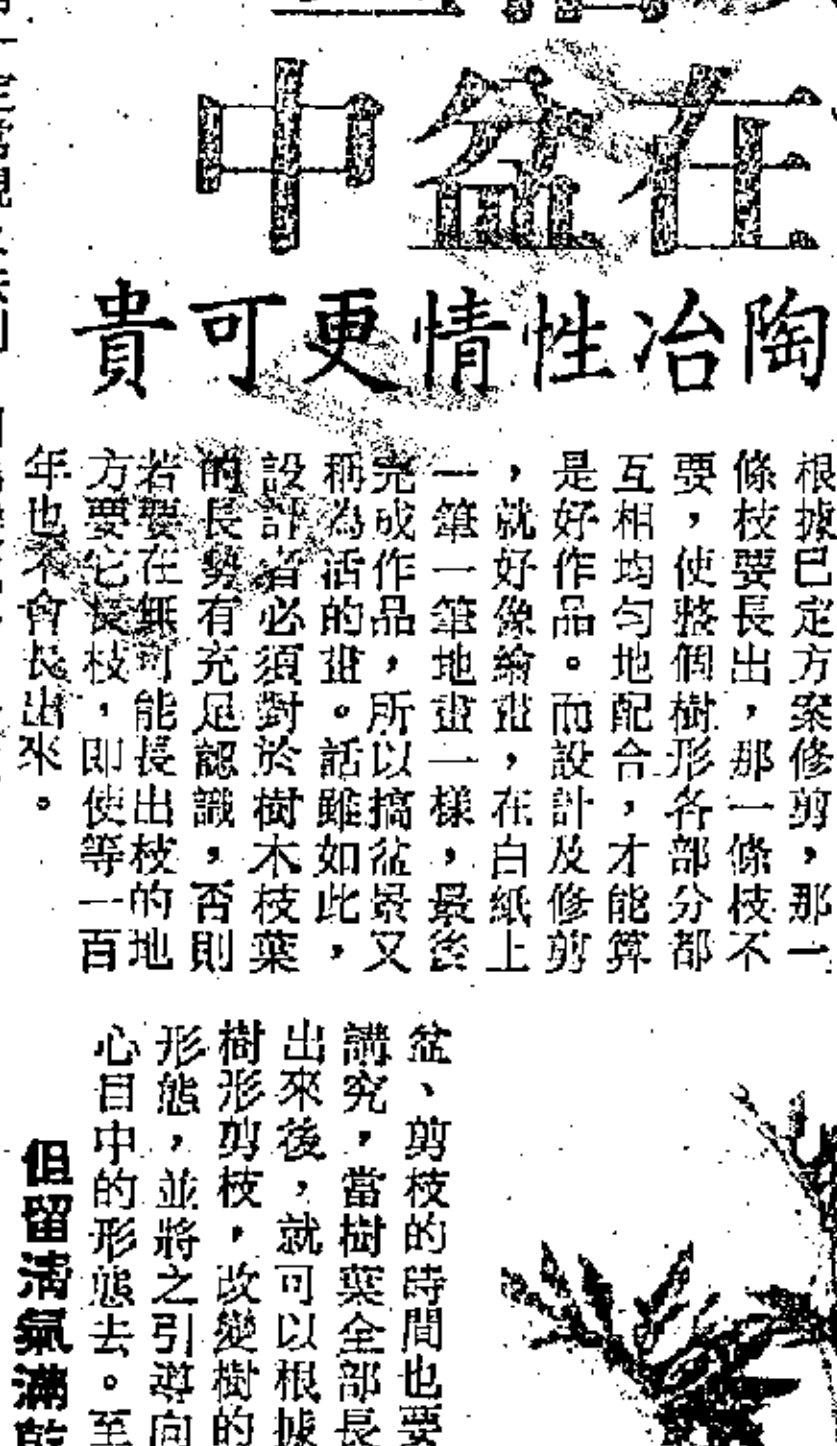 在盆中
陶冶性情更可貴
根據已定方案修剪，那一
條枝要長出，那一條枝不
要，使整個樹形各部分都
互相均勻地配合，才能算
是好作品。而設計及修剪
，就好像繪畫，在白紙上
一筆一筆地畫一樣，最後
完成作品，所以搞盆景又
稱為活的畫。話雖如此，
設計者必須對於樹木枝葉
的長勢有充足認識，否則
若要在無可能長出枝的地
方要它長枝，即使等一百
年也不會長出來。
盆、剪枝的時間也要
講究，當樹葉全部長
出來後，就可以根據
樹形剪枝，改變樹的
形態，並將之引導向
心目中的形態去。至
但留清氣滿乾